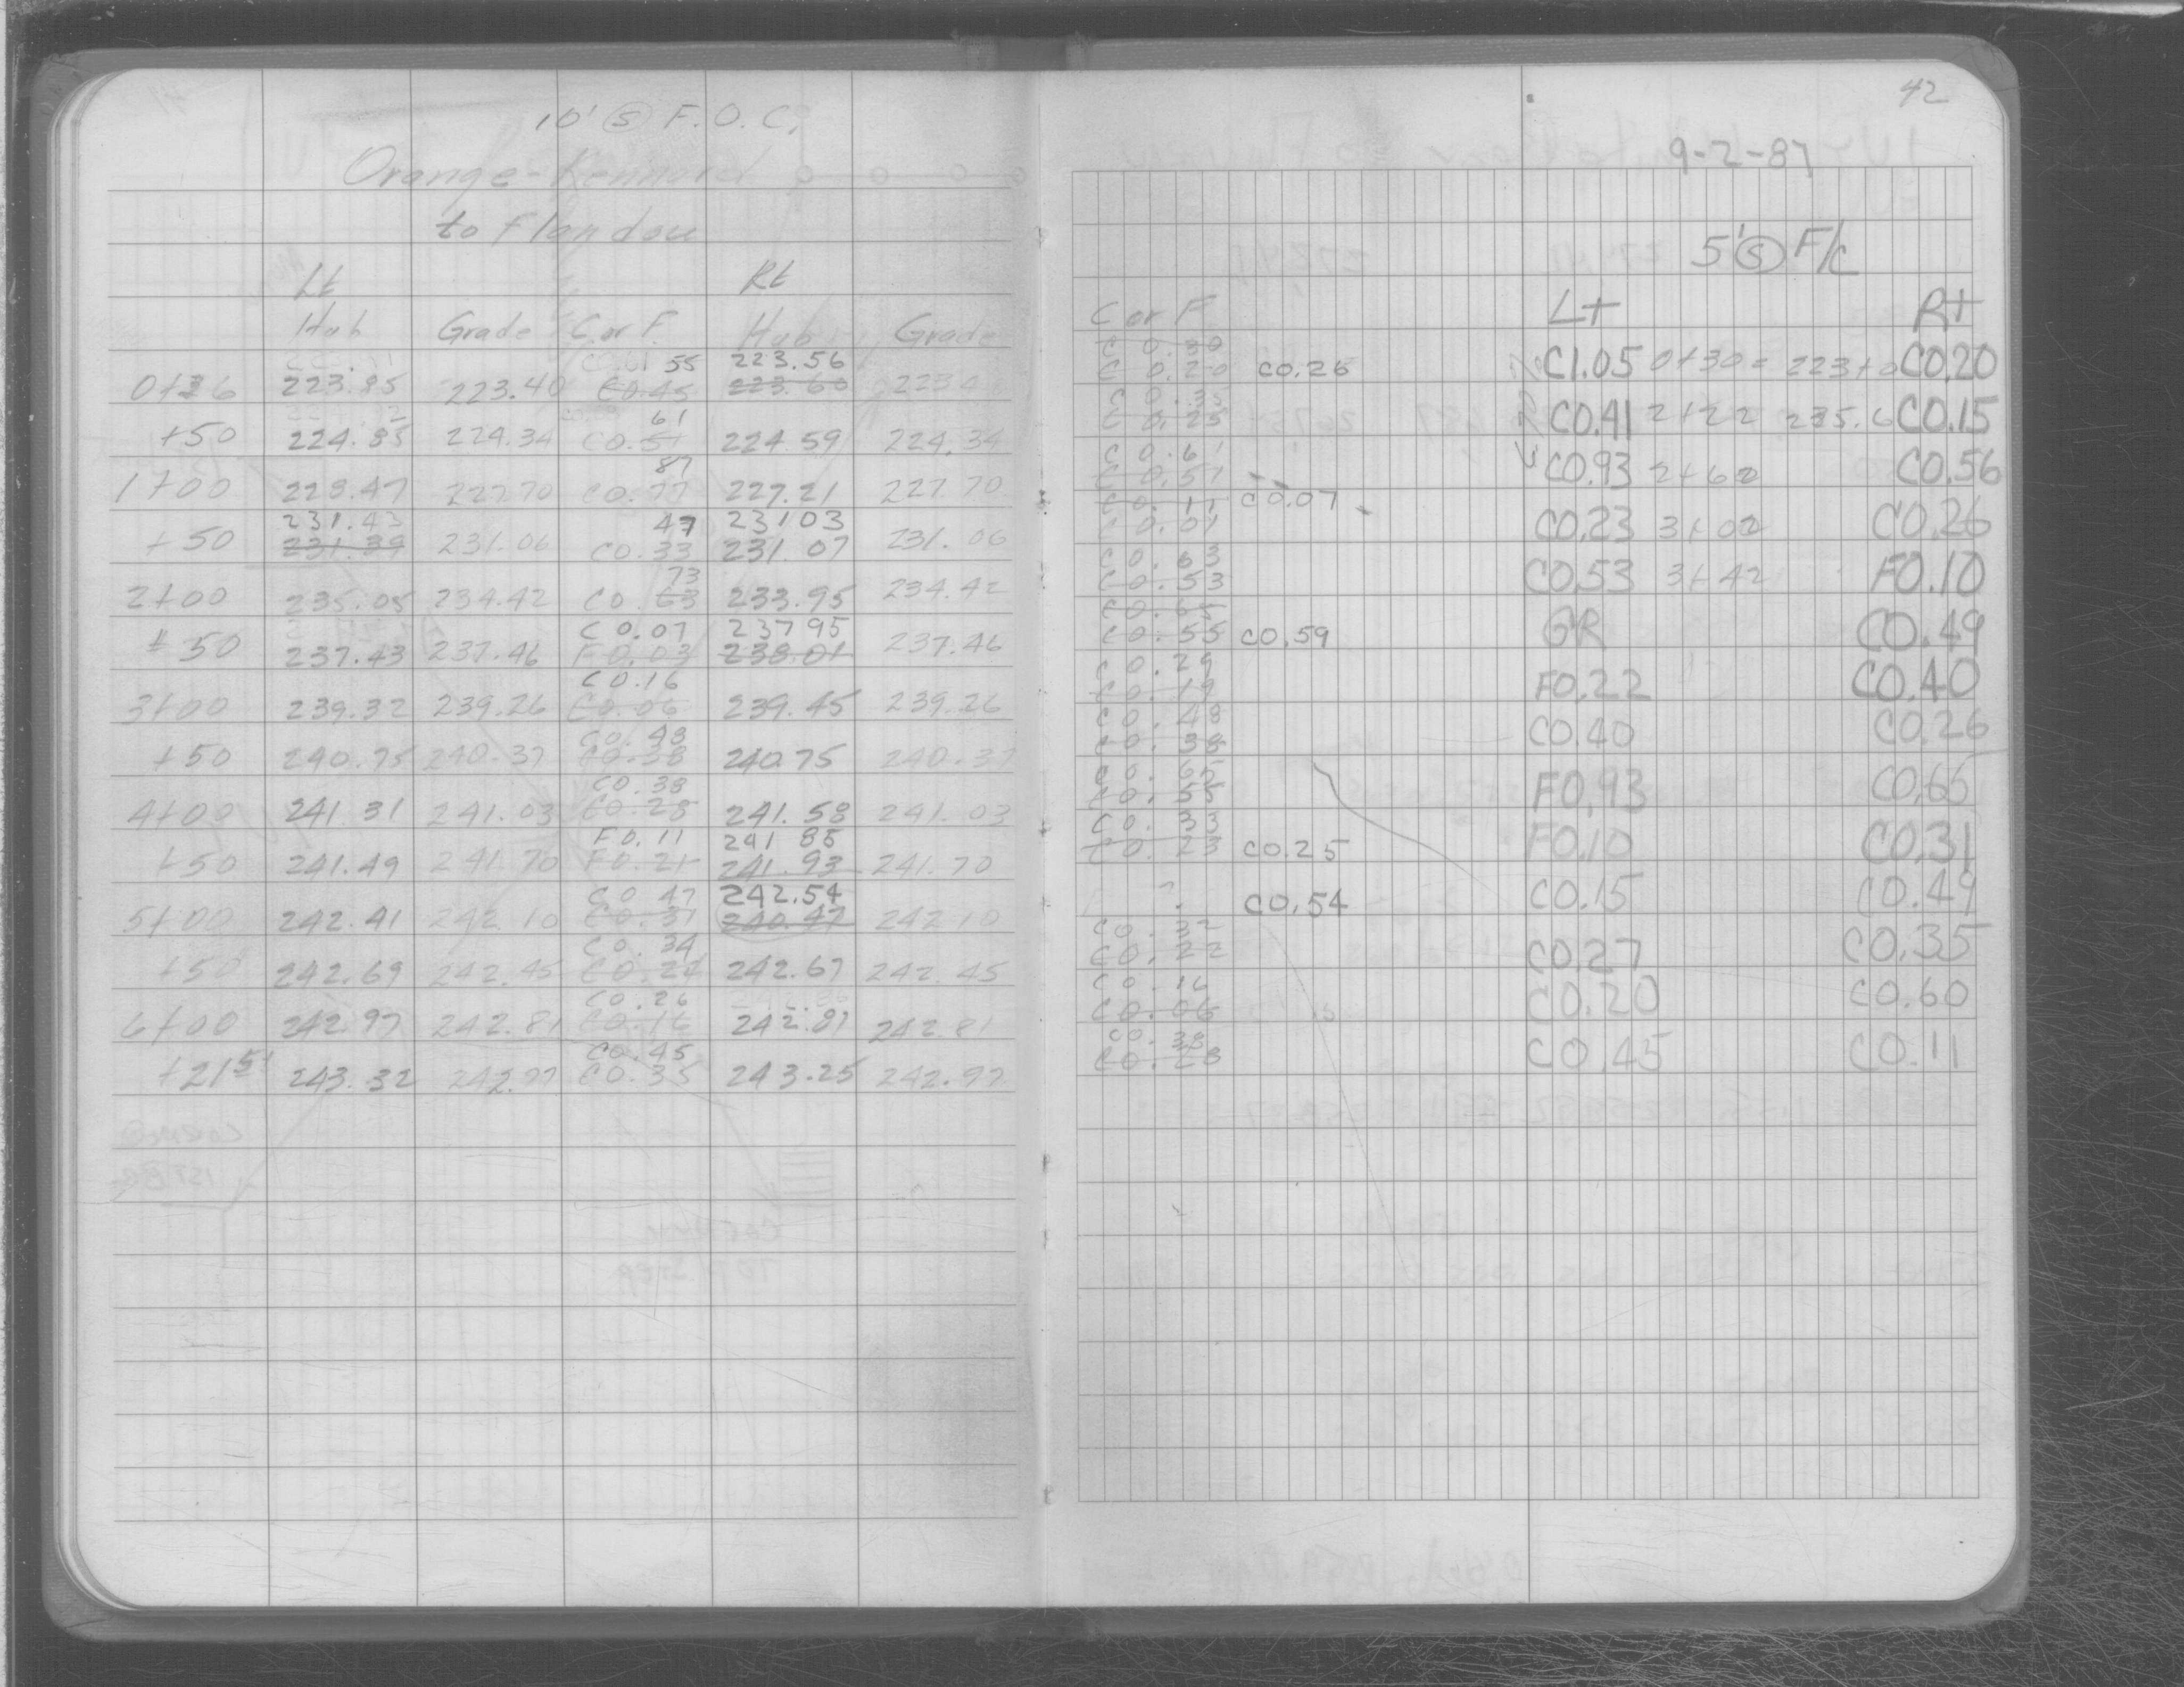 10' Ⓢ F.O.C.
Orange-Kennard
to Flandou
Lt Rt
Hub Grade C or F. Hub Grade
55 223.56
0+36 223.85 223.40 C0.45 223.60 223.4
61
+50 224.85 224.34 C0.51 224.59 224.34
87
1+00 228.47 227.70 C0.77 227.21 227.70
231.43 47 231 03
+50 231.39 231.06 C0.33 231.07 231.06
73
2+00 235.05 234.42 C0.63 233.95 234.42
C0.07 237 95
+50 237.43 237.46 F0.03 238.01 237.46
C0.16
3+00 239.32 239.26 C0.06 239.45 239.26
C0.48
+50 240.75 240.37 C0.38 240.75 240.37
C0.38
4+00 241.31 241.03 C0.28 241.58 241.03
F0.11 241 85
+50 241.49 241.70 F0.21 241.93 241.70
C0 47 242.54
5+00 242.41 242.10 C0.31 240.47 242.10
C0.34
+50 242.69 242.45 C0.24 242.67 242.45
C0.26
6+00 242.97 242.81 C0.16 242.87 242.81
C0.45
+21 51 243.32 242.97 C0.35 243.25 242.97
42
9-2-87
5' Ⓢ F/C
C or F Lt Rt
C0.30
C0.20 C0.26 C1.05 0+30 = 223+0 C0.20
C0.35
C0.25 C0.41 2+22 235.6 C0.15
C0.61
C0.51 C0.93 2+62 C0.56
C0.11 C0.07
C0.01 C0.23 3+02 C0.26
C0.63
C0.53 C0.53 3+42 F0.10
C0.65
C0.55 C0.59 GR C0.49
C0.29
C0.19 F0.22 C0.40
C0.48
C0.38 C0.40 C0.26
C0.65
C0.55 F0.93 C0.65
C0.33
C0.23 C0.25 F0.10 C0.31
? C0.54 C0.15 C0.49
C0.32
C0.22 C0.27 C0.35
C0.16
C0.06 C0.20 C0.60
C0.38
C0.28 C0.45 C0.11